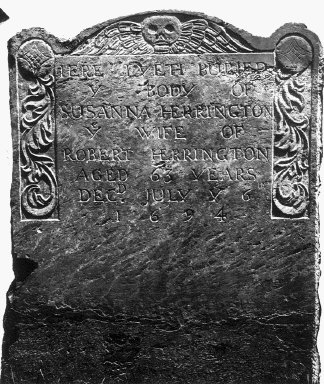 HERE LYETH BURIED
Yͤ BODY OF
SUSANNA HERRINGTON
Yͤ WIFE OF
ROBERT HERRINGTON
AGED 63 YEARS
DECᴰ JULY Yͤ 6
1694